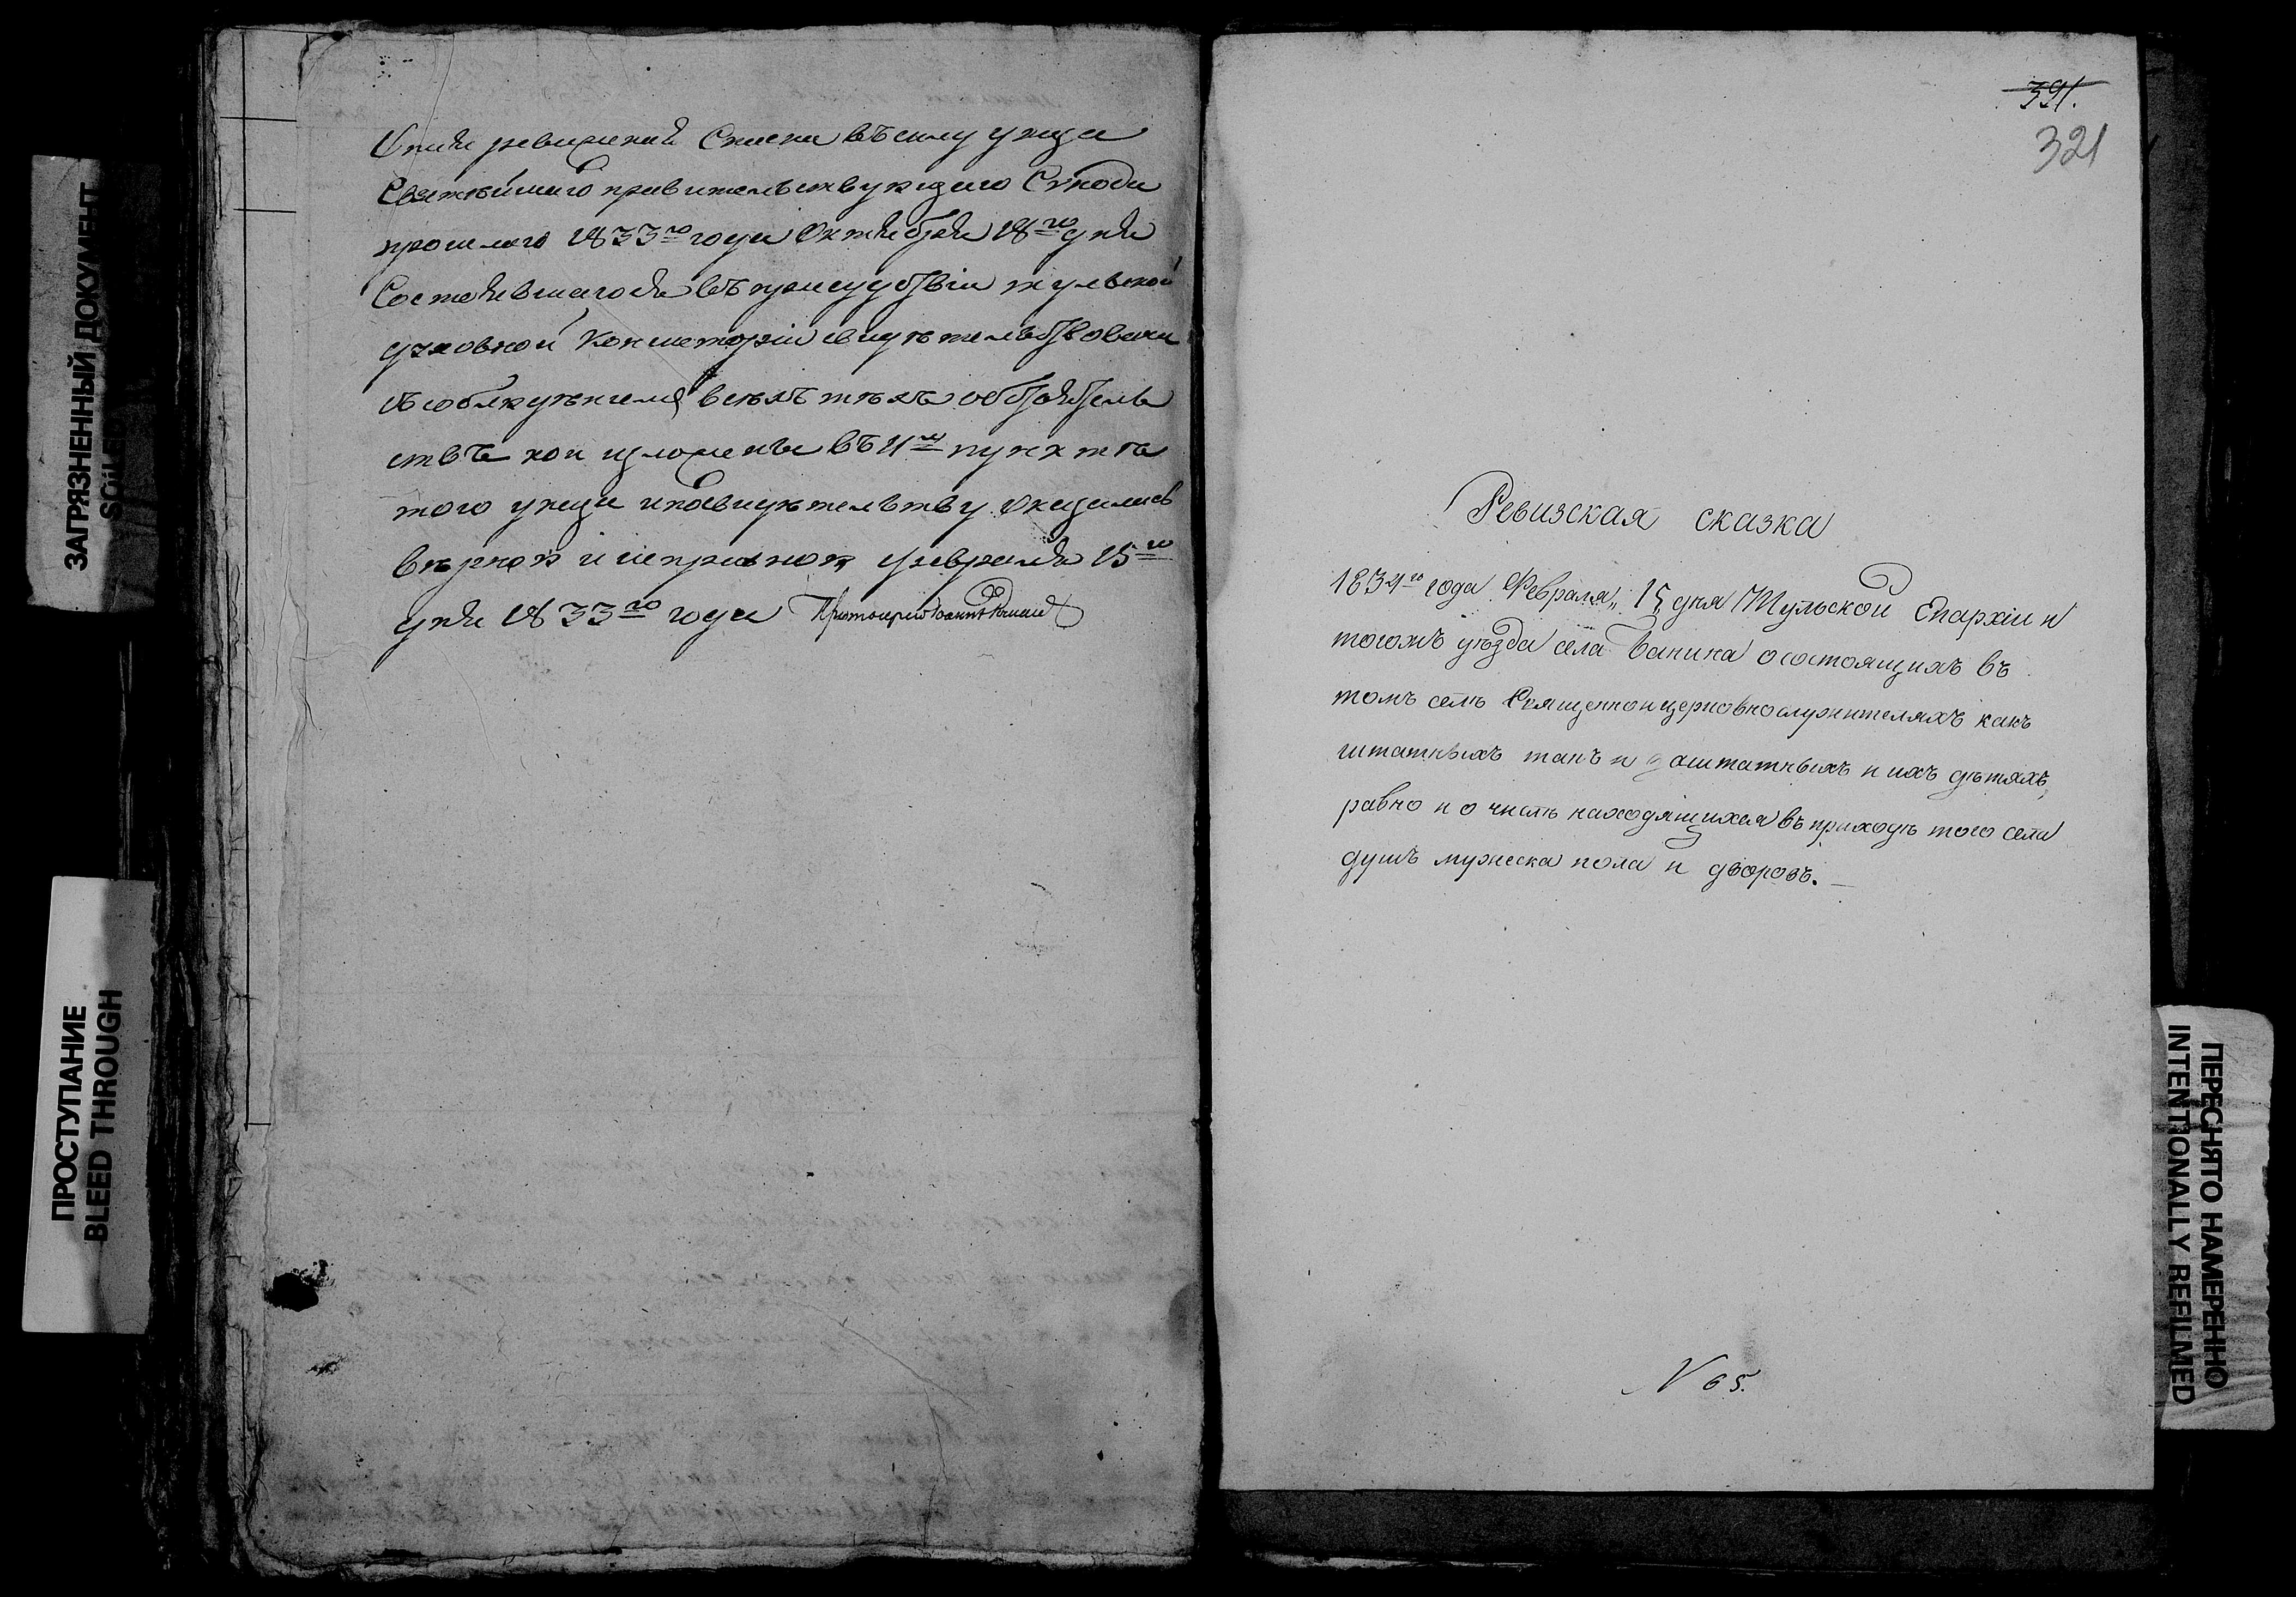 ЗАГРЯЗНЕННЫЙ ДОКУМЕНТ
SOILED
ПРОСТУПАНИЕ
BLEED THROUGH
Сіи ревижскіи Списки въ силу указа
Святѣйшаго правительствующаго Сѵнода
прошлаго 1833го года Октября 18го дня
Состоявшагося въ присудствіи тульской
духовной Консисторіи свидѣтельствованы
съ соблюдѣнiемъ всѣхъ тѣхъ обстоятель
ствъ кои изложены въ 4мъ пунктѣ
того указа и по свидѣтельству оказались
вѣрны и исправны февраля 15го
дня 1833го года Протоіерей Іоаннъ
391.
321
Ревизская сказка
1834го года Февраля „15„ дня Тульской Епархіи и
тогожъ уѣзда села Банина о состоящихъ въ
томъ селѣ Священноицерковнослужителяхъ какъ
штатныхъ такъ и заштатныхъ и ихъ дѣтяхъ,
равно и о числѣ находящихся въ приходѣ того села
душъ мужеска пола и дворовъ.
N 65.
ПЕРЕСНЯТО НАМЕРЕННО
INTENTIONALLY REFILMED